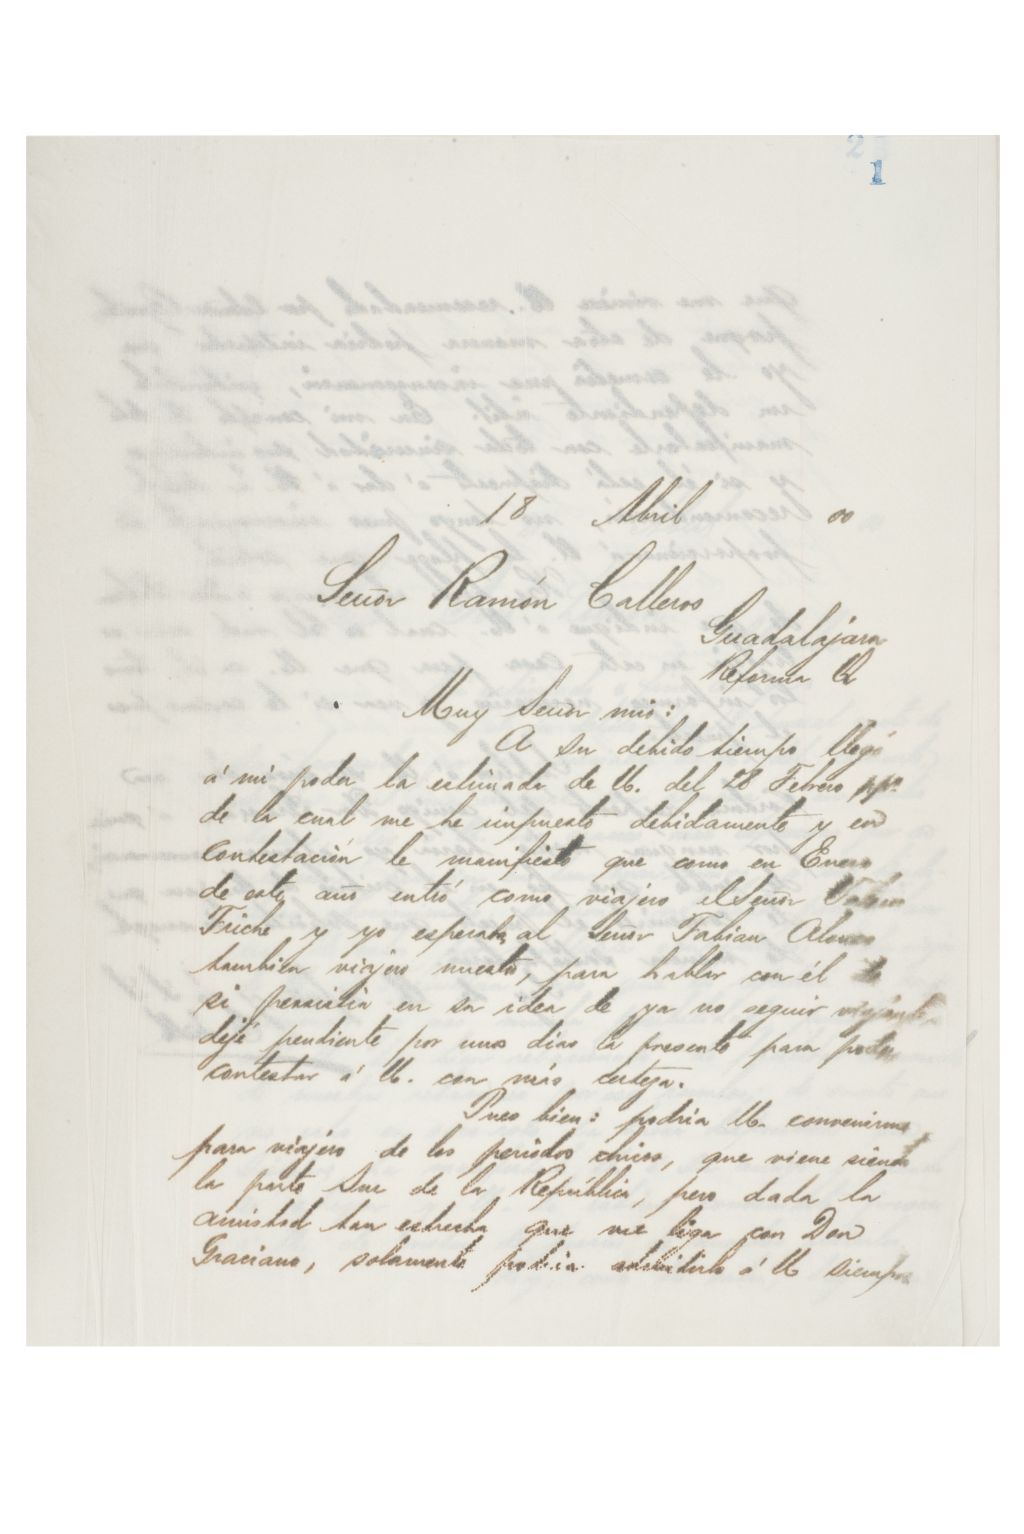 1
18 Abril 00
Señor Ramón Calleros
Guadalajara
Reforma
Muy Señor mio:
A su debido tiempo llegó
á mi poder la estimada de U. del 28 Febrero ppo.
de la cual me he impuesto debidamente y en
contestación le manifiesto que como en Enero
de este año entró como viajero el Señor
Friche y yo esperaba al Señor Fabian Alonso
tambien viajero nuestro, para hablar con él
si persistia en su idea de ya no seguir viajando
dejé pendiente por unos dias la presente para poder
contestar á U. con más certeza.
Pues bien: podria U. convenirme
para viajero de los periodos chicos, que viene siendo
la parte Sur de la República, pero dada la
amistad tan estrecha que me liga con Don
Graciano, solamente podria admitirlo á U siempre